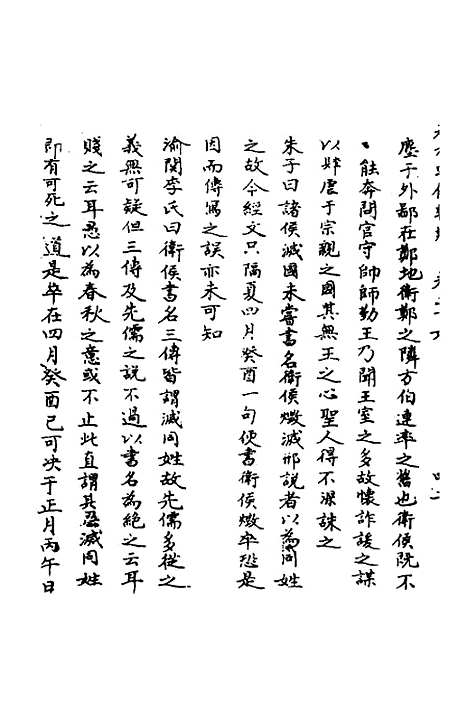 塵于外鄙在鄭地衛鄭之隣方伯連率之舊也衛侯既不
能奔問官守帥師勤王乃聞王室之多故懷詐諼之謀
以肆虐于宗親之國其無王之心聖人得不深誅之
朱子曰諸侯滅國未嘗書名衛侯燬滅邢說者以為同姓
之故今經文只隔夏四月癸酉一句便書衛侯燬卒恐是
因而傳寫之誤亦未可知
渝関李氏曰衛侯書名三傳皆謂滅同姓故先儒多從之
義無可疑但三傳及先儒之說不過以書名為絕之云耳
賤之云耳愚以為春秋之意或不止此直謂其滅同姓
即有可死之道是卒在四月癸酉已可决于正月丙午日